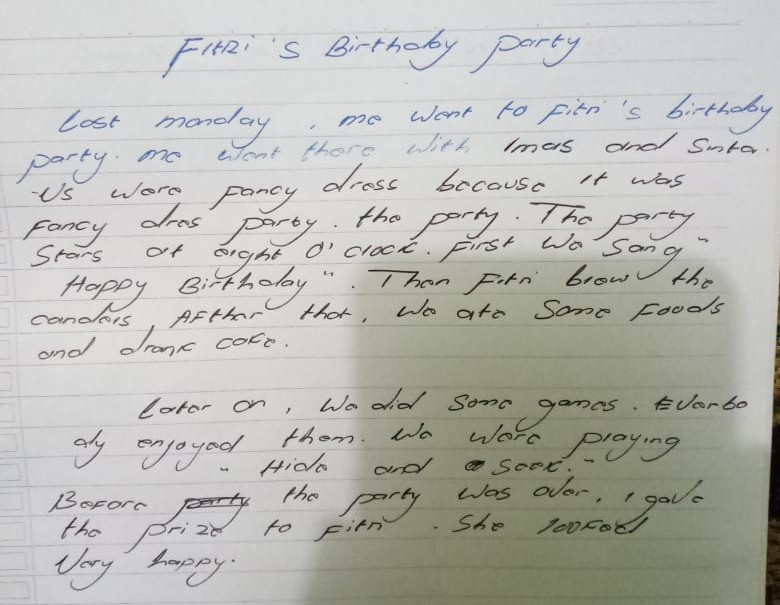 Fitri's Birthday party
Last monday, me went to Fitri's birthday
party. me went there with Imas and Sinta.
Us were fancy dress because it was
Fancy dres party. the party. The party
Stars at eight O'clock. First We Sang "
Happy Birthday". Then Fitri brow the
canders, AFther that, We ate Some Foods
and drank coke.
Later on, We did some games. Evarbo
dy enjoyed them. We were playing
" Hide and Seek."
Before party the party was over, I gave
the prize to Fitri. She looked
Very happy.